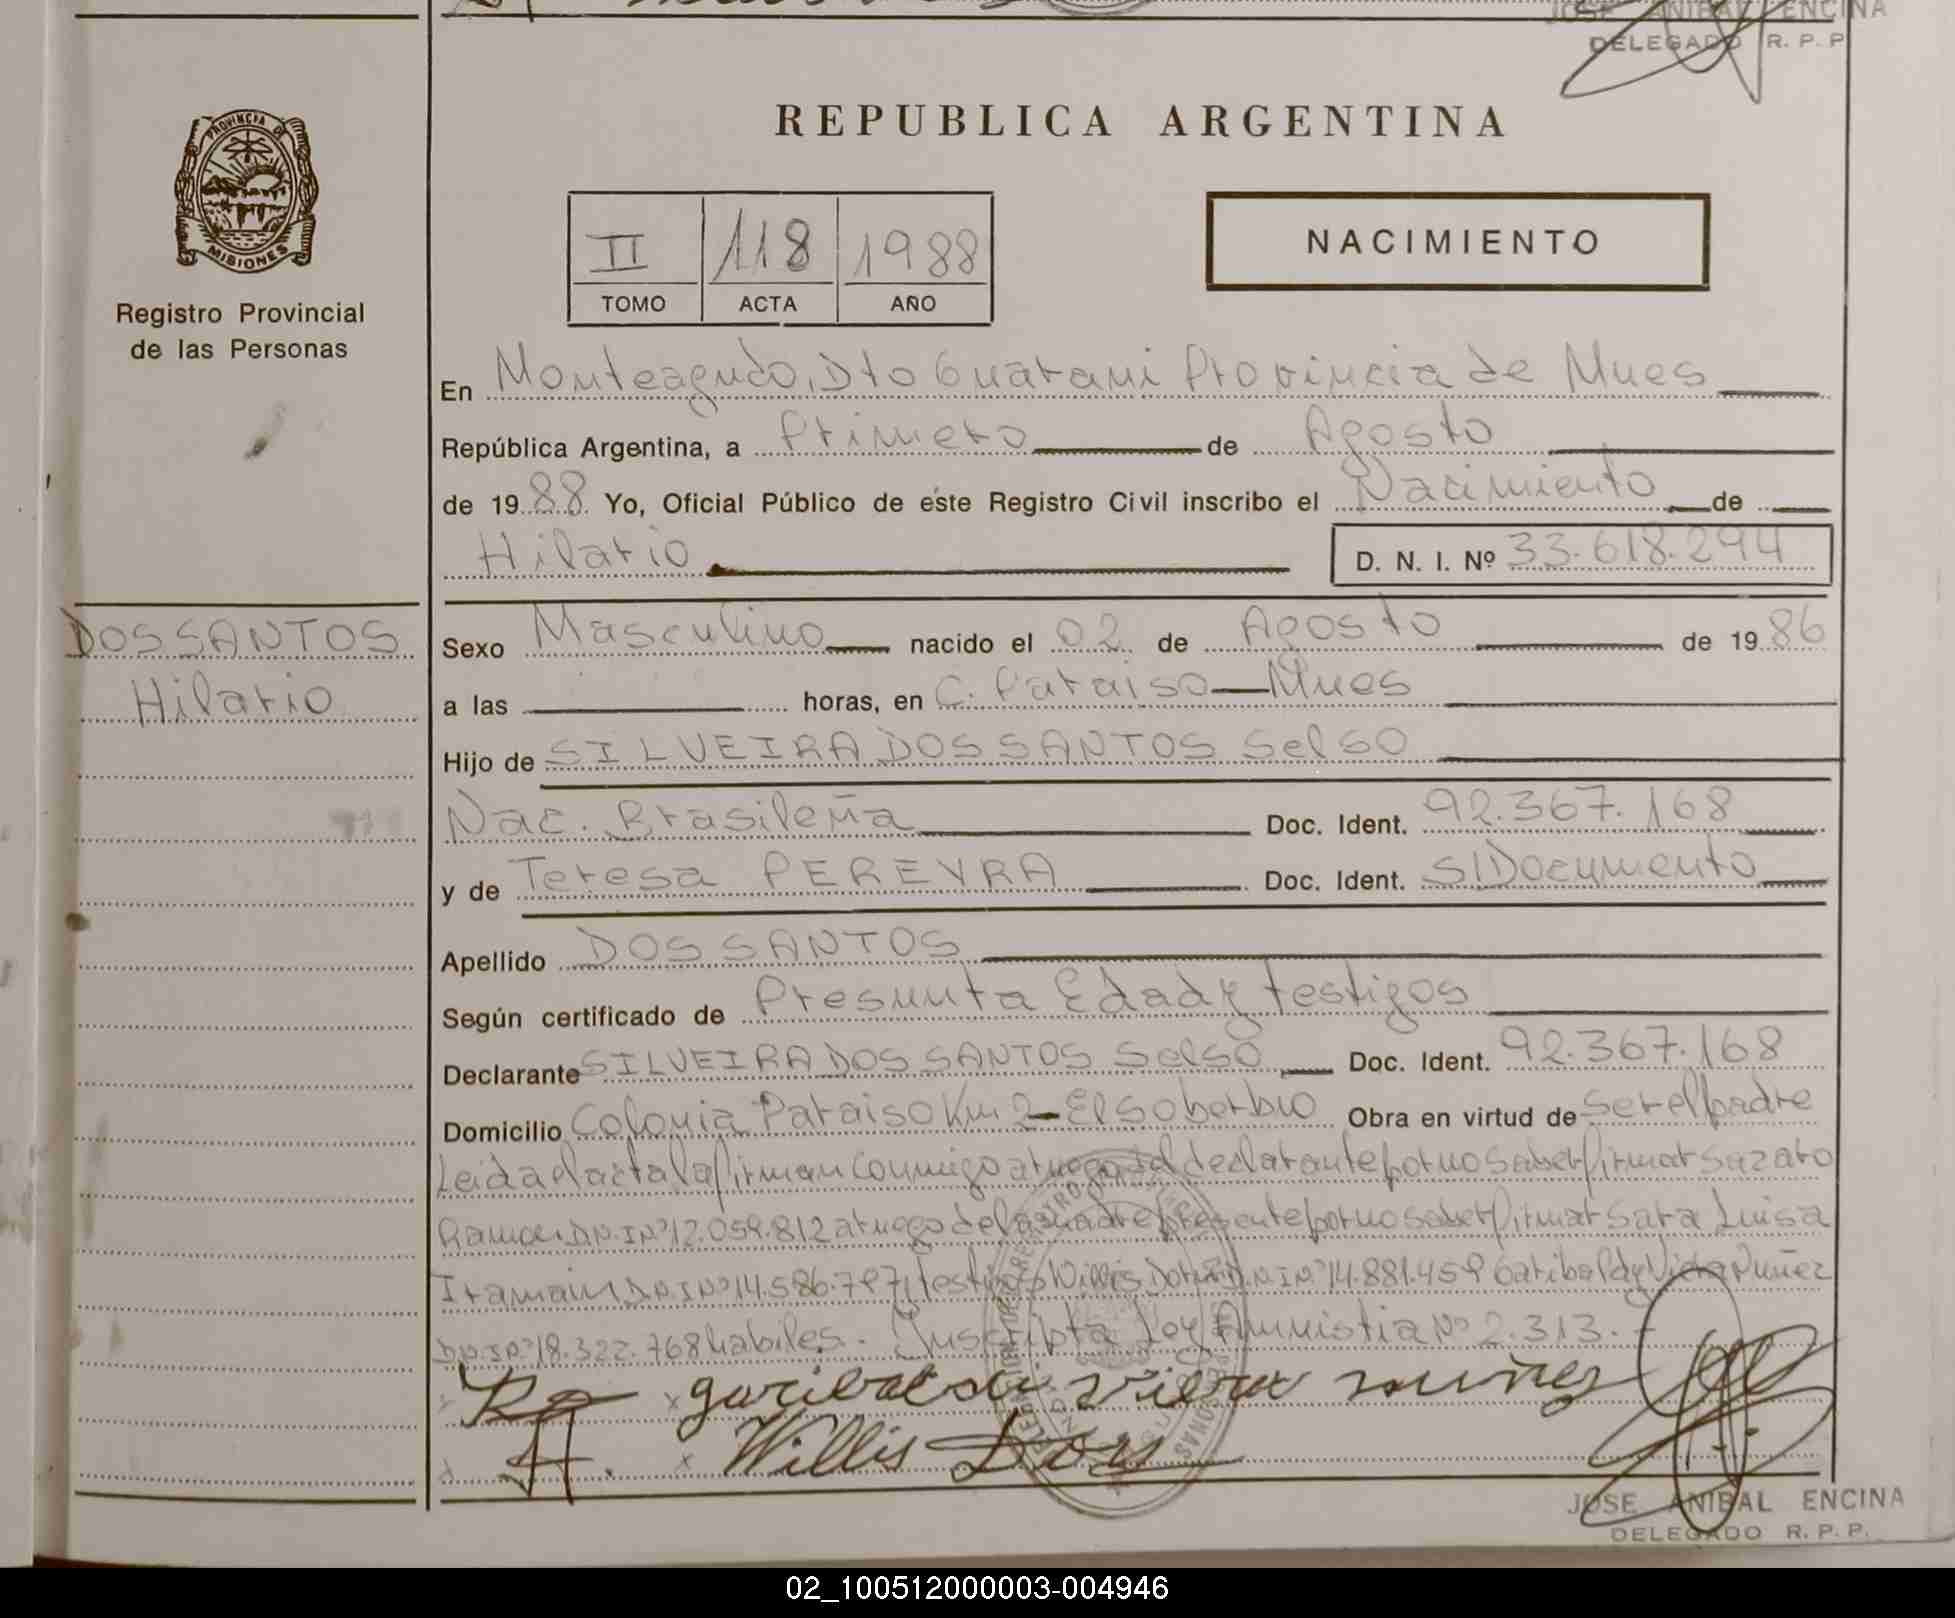 JOSE ANIBAL ENCINA
DELEGADO R. P. P.
PROVINCIA DE
MISIONES
Registro Provincial
de las Personas
REPUBLICA ARGENTINA
II 118 1988
TOMO ACTA AÑO
NACIMIENTO
En Monteagudo, Dto Guarani Provincia de Mnes
República Argentina, a Primero de Agosto
de 1988 Yo, Oficial Público de este Registro Civil inscribo el Nacimiento de
Hilario D. N. I. Nº 33.618.294
DOS SANTOS
Hilario
Sexo Masculino nacido el 02 de Agosto de 1986
a las horas, en C. Paraiso - Mnes
Hijo de SILVEIRA DOS SANTOS Selso
Nac. Brasileña Doc. Ident. 92.367.168
y de Teresa PEREYRA Doc. Ident. S/Documento
Apellido DOS SANTOS
Según certificado de Presunta Edad y testigos
Declarante SILVEIRA DOS SANTOS Selso Doc. Ident. 92.367.168
Domicilio Colonia Paraiso Km 2 - El Soberbio Obra en virtud de ser el padre
Leida el acta la firman conmigo a ruego del declarante por no saber firmar Sazaro
Ramon D.N.I Nº 12.059.812 a ruego de la madre presente por no saber firmar Sara Luisa
Iramain D.N.I Nº 14.586.797, testigos Willis D.N.I Nº 14.881.459 Garibaldy Viera Nuñez
D.N.I Nº 18.322.768 habiles. - Inscripta Ley Amnistia Nº 2.313. -
x garibaldi viera nuñez
x Willis Dors
JOSE ANIBAL ENCINA
DELEGADO R. P. P.
02_100512000003-004946